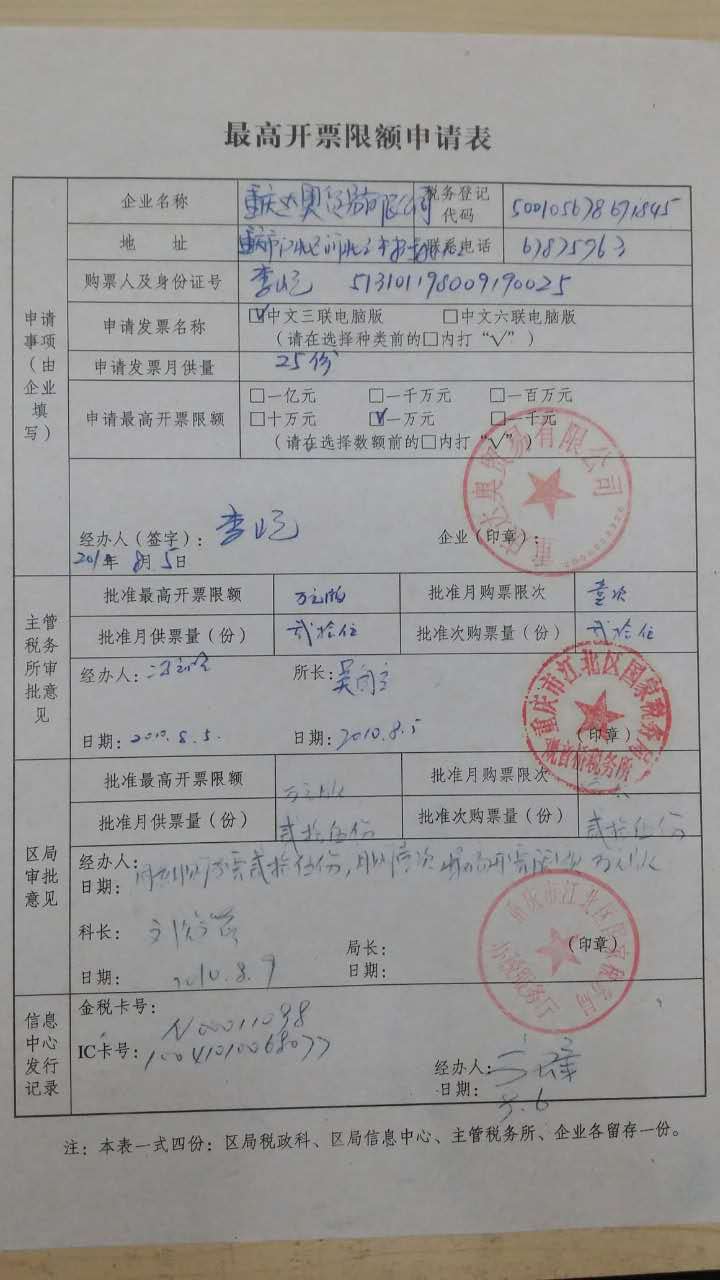 最高开票限额申请表
申请事项（由企业填写）
企业名称 重庆达奥贸易有限公司 税务登记代码 500105678671845
地 址 重庆市江北区 联系电话 67875963
购票人及身份证号 李屹 513101198009190025
申请发票名称 ☑中文三联电脑版 □中文六联电脑版
（请在选择种类前的□内打“√”）
申请发票月供量 25份
申请最高开票限额 □一亿元 □一千万元 □一百万元
□十万元 ☑一万元 □一千元
（请在选择数额前的□内打“√”）
经办人（签字）：李屹 企业（印章）：
年 8月5日
重庆达奥贸易有限公司
主管税务所审批意见
批准最高开票限额 万元版 批准月购票限次 壹次
批准月供票量（份） 贰拾伍 批准次购票量（份） 贰拾伍
经办人： 所长：
日期：2010.8.5. 日期：2010.8.5 （印章）
重庆市江北区国家税务局
观音桥税务所
区局审批意见
批准最高开票限额 批准月购票限次
批准月供票量（份） 贰拾伍份 批准次购票量（份） 贰拾伍份
经办人：
日期：
科长： 局长：
日期：2010.8.9 日期： （印章）
重庆市江北区国家税务局
办税服务厅
信息中心发行记录
金税卡号：N00011038
IC卡号：10041010068077
经办人：
日期：8.6
注：本表一式四份：区局税政科、区局信息中心、主管税务所、企业各留存一份。